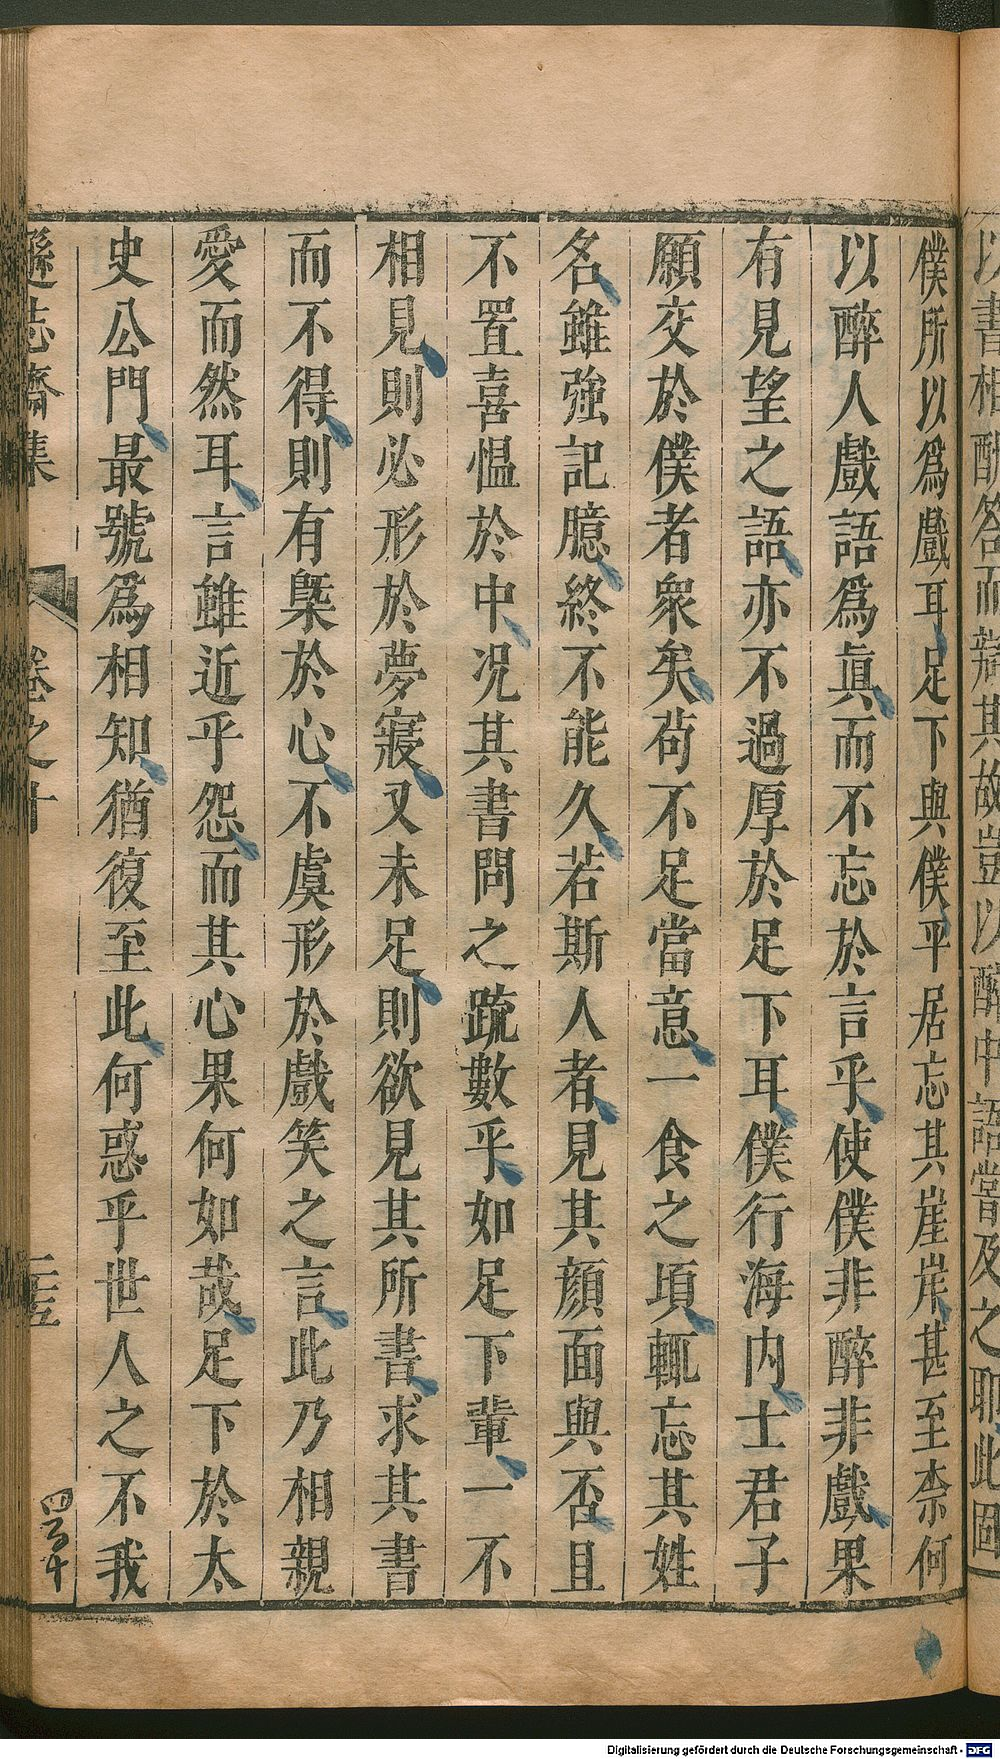 以書相酬答而辯其故豈以醉中語嘗及之耶此固
僕所以爲戲耳足下與僕平居忘其崖岸甚至柰何
以醉人戲語爲眞而不忘於言乎使僕非醉非戲果
有見望之語亦不過厚於足下耳僕行海内士君子
願交於僕者衆矣苟不足當意一食之頃輒忘其姓
名雖強記臆終不能久若斯人者見其顔面與否且
不置喜慍於中况其書問之疏數乎如足下輩一不
相見則必形於夢寢又未足則欲見其所書求其書
而不得則有槩於心不虞形於戲笑之言此乃相親
愛而然耳言雖近乎怨而其心果何如哉足下於太
史公門最號爲相知猶復至此何惑乎世人之不我
遜志齋集 卷之十
四百十
Digitalisierung gefördert durch die Deutsche Forschungsgemeinschaft - DFG